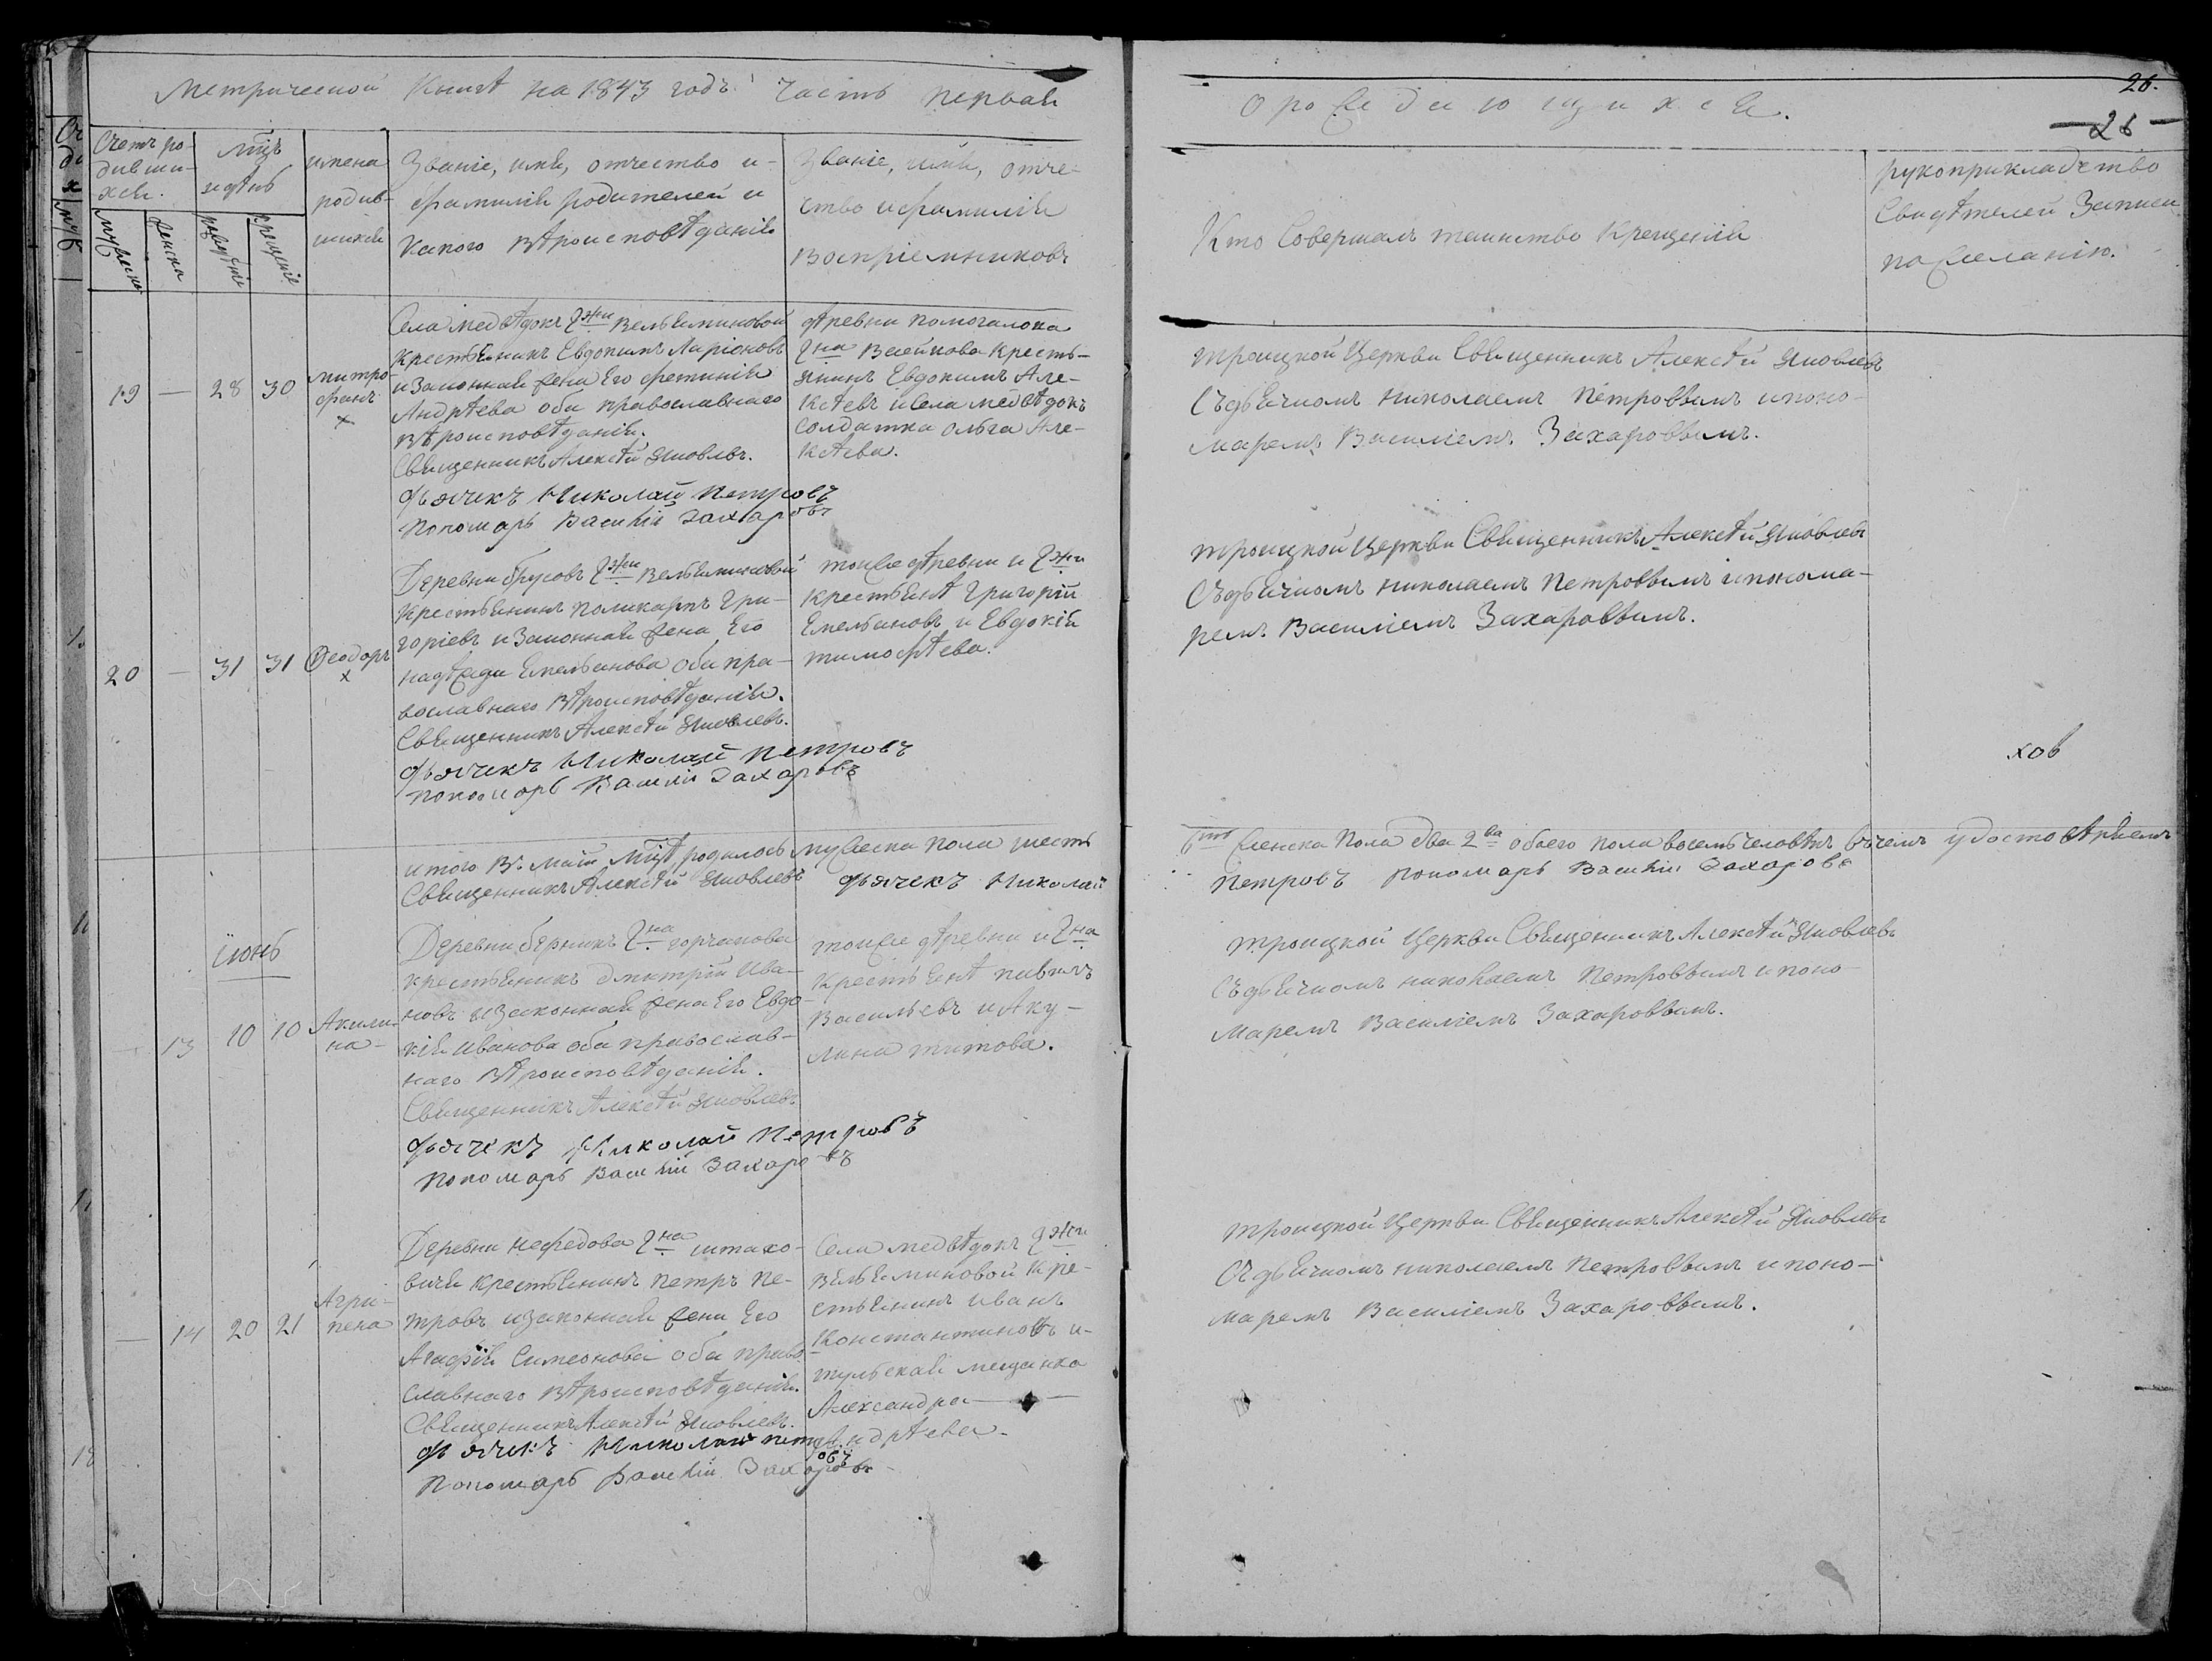 Метрической Книги на 1843 годъ Часть первая
о рождающихся.
26.
26
Счетъ ро-
дивши-
хся.
Мужеска
женска
Мцъ
и день
рожденіе
крещеніе
имена
родив-
шихся
Званіе, имя, отчество и
фамилія родителей и
какого вѣроисповѣданія
Званіе, имя, отче-
ство и фамилія
воспріемниковъ
Кто Совершалъ таинство Крещенія
рукоприкладство
Свидѣтелей Записи
по желанію.
19 — 28 30
митро-
фанъ
х
Села медвѣдокъ Гжи Вельяминовой
крестьянинъ Евдокимъ Ларіоновъ
и Законная жена Его фетинія
Андрѣева оба православнаго
вѣроисповѣданія.
Священникъ Алексѣй Яковлевъ.
Дьячекъ Николай Петровъ
Пономарь Василій Захаровъ
деревни Помогалова
Гна Васейкова Кресть-
янинъ Евдокимъ Але-
ксѣевъ и Села медвѣдокъ
солдатка Ольга Але-
ксѣева.
Троицкой Церкви Священникъ Алексѣй Яковлевъ
Съ дьячкомъ Николаемъ Петровымъ и поно-
маремъ Василіемъ Захаровымъ.
20 — 31 31
Феодоръ
х
Деревни брусовъ Гжи Вельяминовой
Крестьянинъ Поликарпъ Гри-
горіевъ и Законная жена Его
надежда Емельянова Оба пра-
вославнаго вѣроисповѣданія.
Священникъ Алексѣй Яковлевъ.
Дьячекъ Николай Петровъ
Пономарь Василій Захаровъ
тойже деревни и Гжи
крестьяне Григорій
Емельяновъ и Евдокія
тимофѣева.
Троицкой Церкви Священникъ Алексѣй Яковлевъ
Съ дьячкомъ Николаемъ Петровымъ и понома-
ремъ Василіемъ Захаровымъ.
хов
итого въ маіи мцѣ, родилось мужеска пола шесть 6ть женска Пола два 2ва обоего пола восемь человѣкъ въ чемъ удостовѣряемъ
Священникъ Алексѣй Яковлевъ Дьячекъ Николай Петровъ Пономарь Василій Захаровъ
Іюнь
— 13 10 10
Акили-
на
Деревни берникъ Гна горчакова
крестьянинъ дмитрій Ива-
новъ и Законная жена Его Евдо-
кія Иванова оба православ-
наго вѣроисповѣданія.
Священникъ Алексѣй Яковлевъ
Дьячекъ Николай Петровъ
Пономарь Василій Захаровъ
тойже деревни и Гна
крестьяне павелъ
Васильевъ и Аку-
лина титова.
Троицкой Церкви Священникъ Алексѣй Яковлевъ
Съ дьячкомъ николаемъ Петровымъ и поно-
маремъ Василіемъ Захаровымъ.
— 14 20 21
Агри-
пена
Деревни нефедова Гна штахо-
вича крестьянинъ Петръ Пе-
тровъ и Законная жена Его
Агафія Симеонова оба право
славнаго вѣроисповѣданія.
Священникъ Алексѣй Яковлевъ.
Дьячекъ Николай Петровъ
Пономарь Василій Захаровъ
Села медвѣдокъ Гжи
Вельяминовой Кре-
стьянинъ Иванъ
Константиновъ и
тульская мещанка
Александра
Андрѣева
Троицкой Церкви Священникъ Алексѣй Яковлевъ
Съ дьячкомъ николаемъ Петровымъ и поно-
маремъ Василіемъ Захаровымъ.